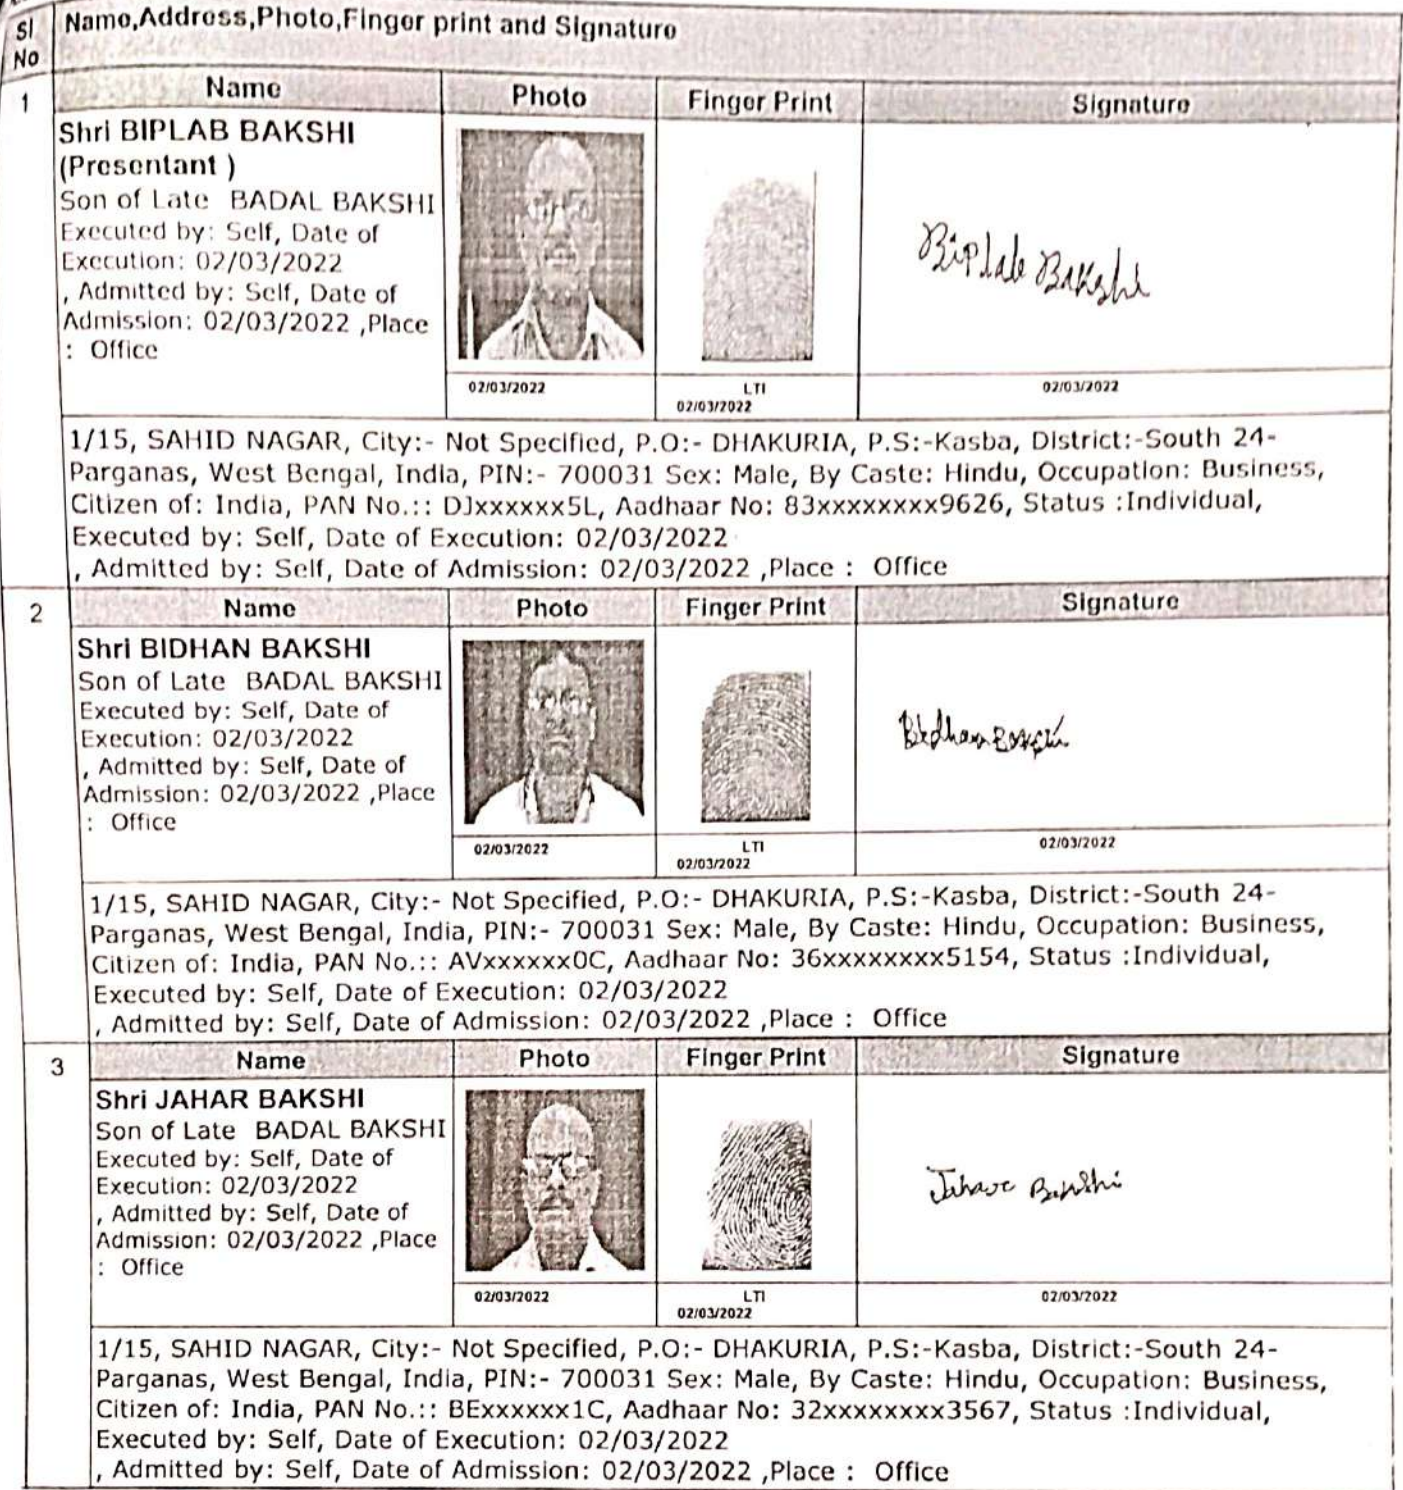 Sl
No
Name,Address,Photo,Finger print and Signature
1
Name
Photo
Finger Print
Signature
Shri BIPLAB BAKSHI
(Presentant )
Son of Late BADAL BAKSHI
Executed by: Self, Date of
Execution: 02/03/2022
, Admitted by: Self, Date of
Admission: 02/03/2022 ,Place
: Office
Biplab Bakshi
02/03/2022
LTI
02/03/2022
02/03/2022
1/15, SAHID NAGAR, City:- Not Specified, P.O:- DHAKURIA, P.S:-Kasba, District:-South 24-
Parganas, West Bengal, India, PIN:- 700031 Sex: Male, By Caste: Hindu, Occupation: Business,
Citizen of: India, PAN No.:: DJxxxxxx5L, Aadhaar No: 83xxxxxxxx9626, Status :Individual,
Executed by: Self, Date of Execution: 02/03/2022
, Admitted by: Self, Date of Admission: 02/03/2022 ,Place : Office
2
Name
Photo
Finger Print
Signature
Shri BIDHAN BAKSHI
Son of Late BADAL BAKSHI
Executed by: Self, Date of
Execution: 02/03/2022
, Admitted by: Self, Date of
Admission: 02/03/2022 ,Place
: Office
Bidhan Bakshi
02/03/2022
LTI
02/03/2022
02/03/2022
1/15, SAHID NAGAR, City:- Not Specified, P.O:- DHAKURIA, P.S:-Kasba, District:-South 24-
Parganas, West Bengal, India, PIN:- 700031 Sex: Male, By Caste: Hindu, Occupation: Business,
Citizen of: India, PAN No.:: AVxxxxxx0C, Aadhaar No: 36xxxxxxxx5154, Status :Individual,
Executed by: Self, Date of Execution: 02/03/2022
, Admitted by: Self, Date of Admission: 02/03/2022 ,Place : Office
3
Name
Photo
Finger Print
Signature
Shri JAHAR BAKSHI
Son of Late BADAL BAKSHI
Executed by: Self, Date of
Execution: 02/03/2022
, Admitted by: Self, Date of
Admission: 02/03/2022 ,Place
: Office
Jahar Bakshi
02/03/2022
LTI
02/03/2022
02/03/2022
1/15, SAHID NAGAR, City:- Not Specified, P.O:- DHAKURIA, P.S:-Kasba, District:-South 24-
Parganas, West Bengal, India, PIN:- 700031 Sex: Male, By Caste: Hindu, Occupation: Business,
Citizen of: India, PAN No.:: BExxxxxx1C, Aadhaar No: 32xxxxxxxx3567, Status :Individual,
Executed by: Self, Date of Execution: 02/03/2022
, Admitted by: Self, Date of Admission: 02/03/2022 ,Place : Office